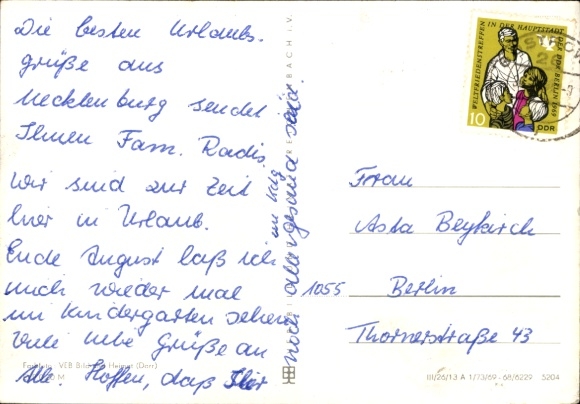 Die besten Urlaubs-
grüße aus
Mecklenburg sendet
Ihnen Fam. Radis.
Wir sind zur Zeit
hier in Urlaub.
Ende August laß ich
mich wieder mal
im Kindergarten sehen
Viele liebe Grüße an
Alle. Hoffen, daß
noch alle gesund sind.
WELTFRIEDENSTREFFEN IN DER HAUPTSTADT DER DDR BERLIN 1969
10
DDR
Frau
Asta Beykirch
1055 Berlin
Thornerstraße 43
VEB Bild und Heimat
III/26/13 A 1773/69 - 68/6229 5204